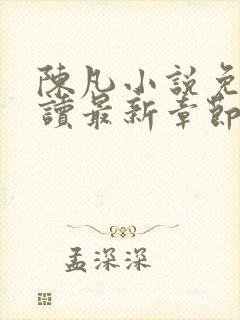 陳凡小說免
讀最新章節
孟深深